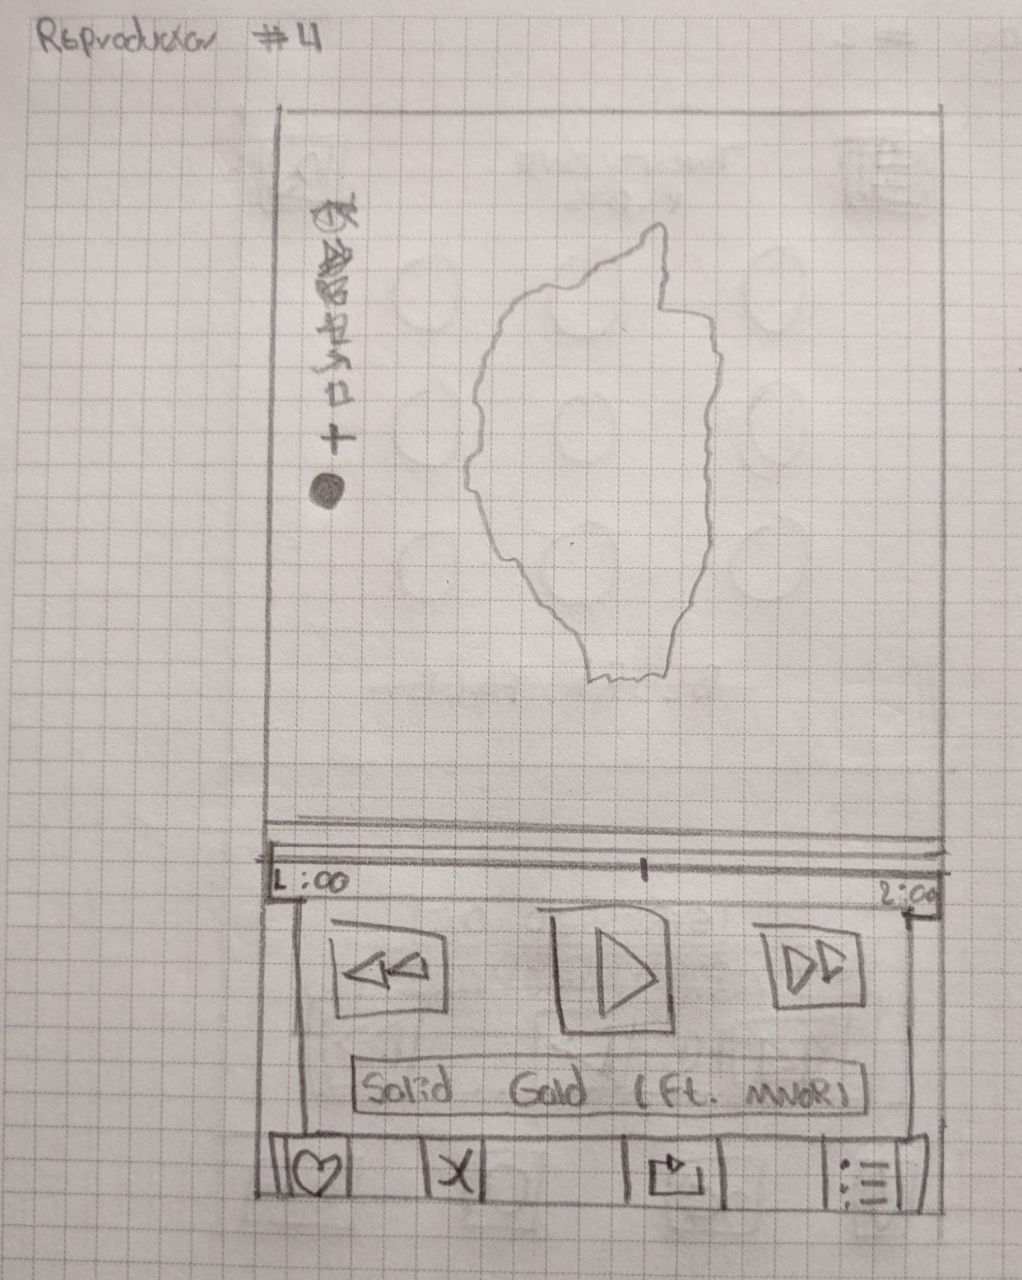 Reproductor #4
1:00
2:00
Solid Gold (ft. MNDR)